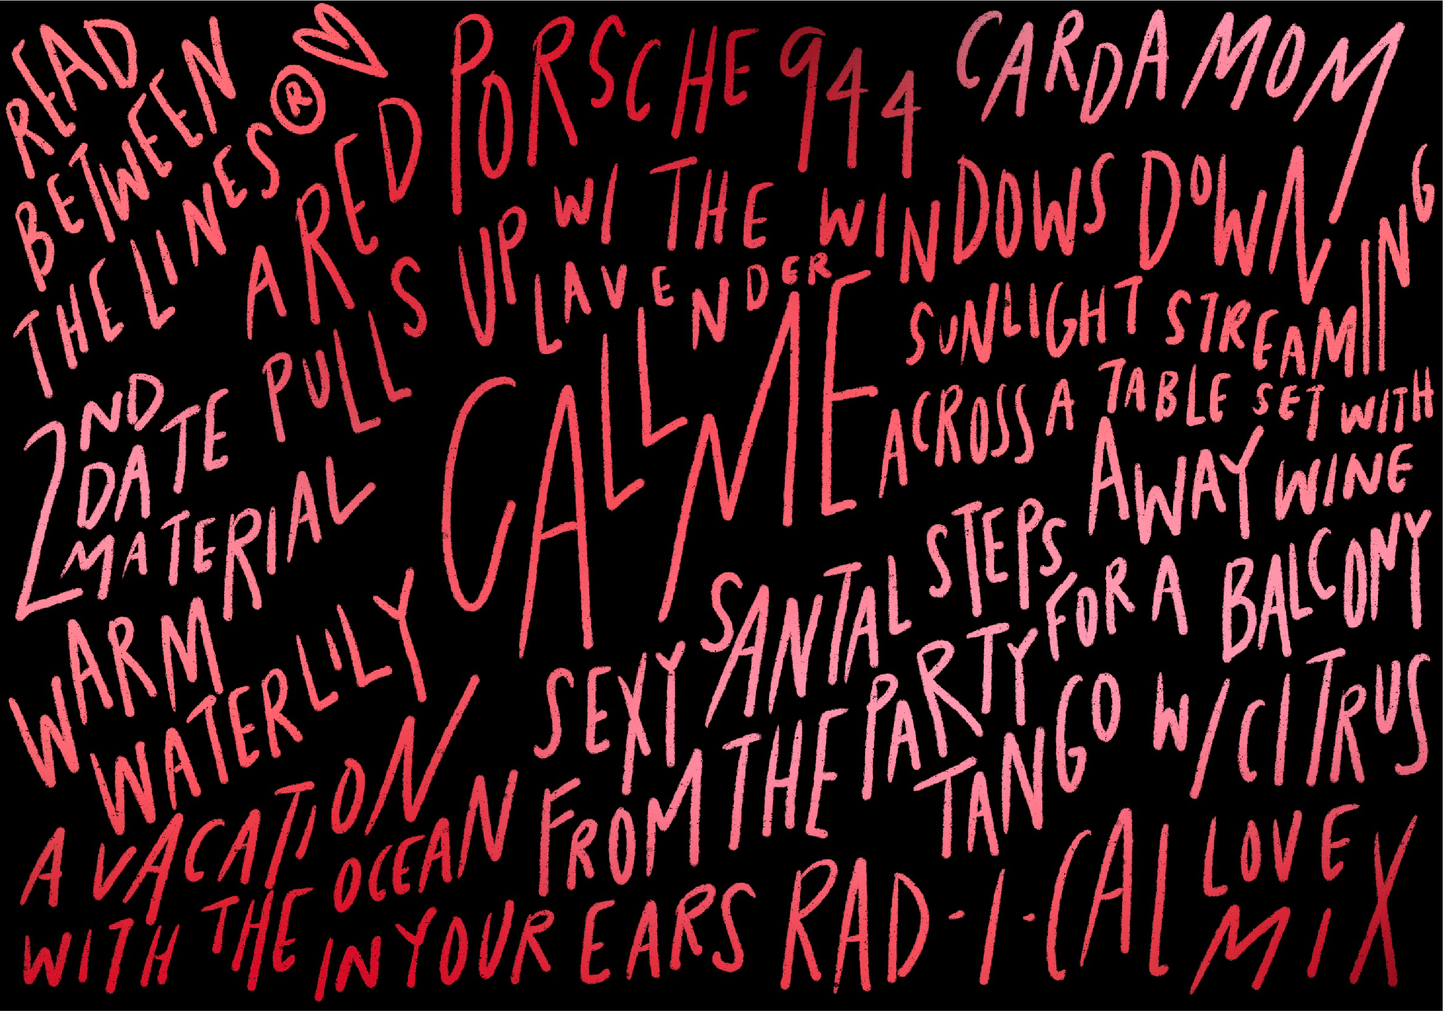 READ
BETWEEN
THE LINES®
A RED PORSCHE 944
PULLS UP W/ THE WINDOWS DOWN,
CARDAMOM
LAVENDER
CALL ME
SUNLIGHT STREAMIIING
ACROSS A TABLE SET WITH
WINE
2ND
DATE
MATERIAL
STEPS AWAY
FROM THE PARTY FOR A BALCONY
TANGO W/ CITRUS
SEXY SANTAL
WARM
WATERLILY
A VACATION
WITH THE OCEAN
IN YOUR EARS
RAD-I-CAL LOVE
MIX